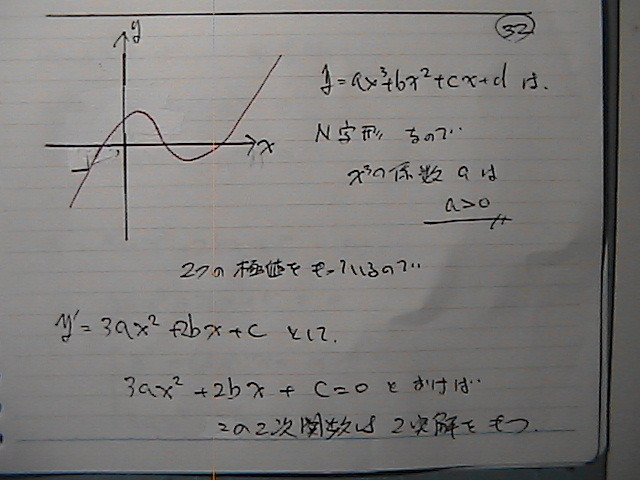 32
y
x
y=ax³+bx²+cx+d は.
N字形 なので
x³の係数 a は
a>0
2つの極値をもっているので
y'=3ax²+2bx+c として.
3ax²+2bx+c=0 とおけば
この2次関数は2実解をもつ.